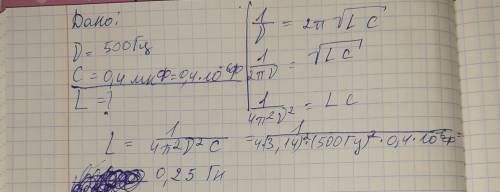 Дано:
ν = 500 Гц
C = 0,4 мкФ = 0,4 · 10⁻⁶ Ф
L = ?
1/ν = 2π √LC
1/2πν = √LC
1/4π²ν² = LC
L = 1/4π²ν²C = 1/4·(3,14)²·(500 Гц)²·0,4·10⁻⁶ф =
0,25 Гн